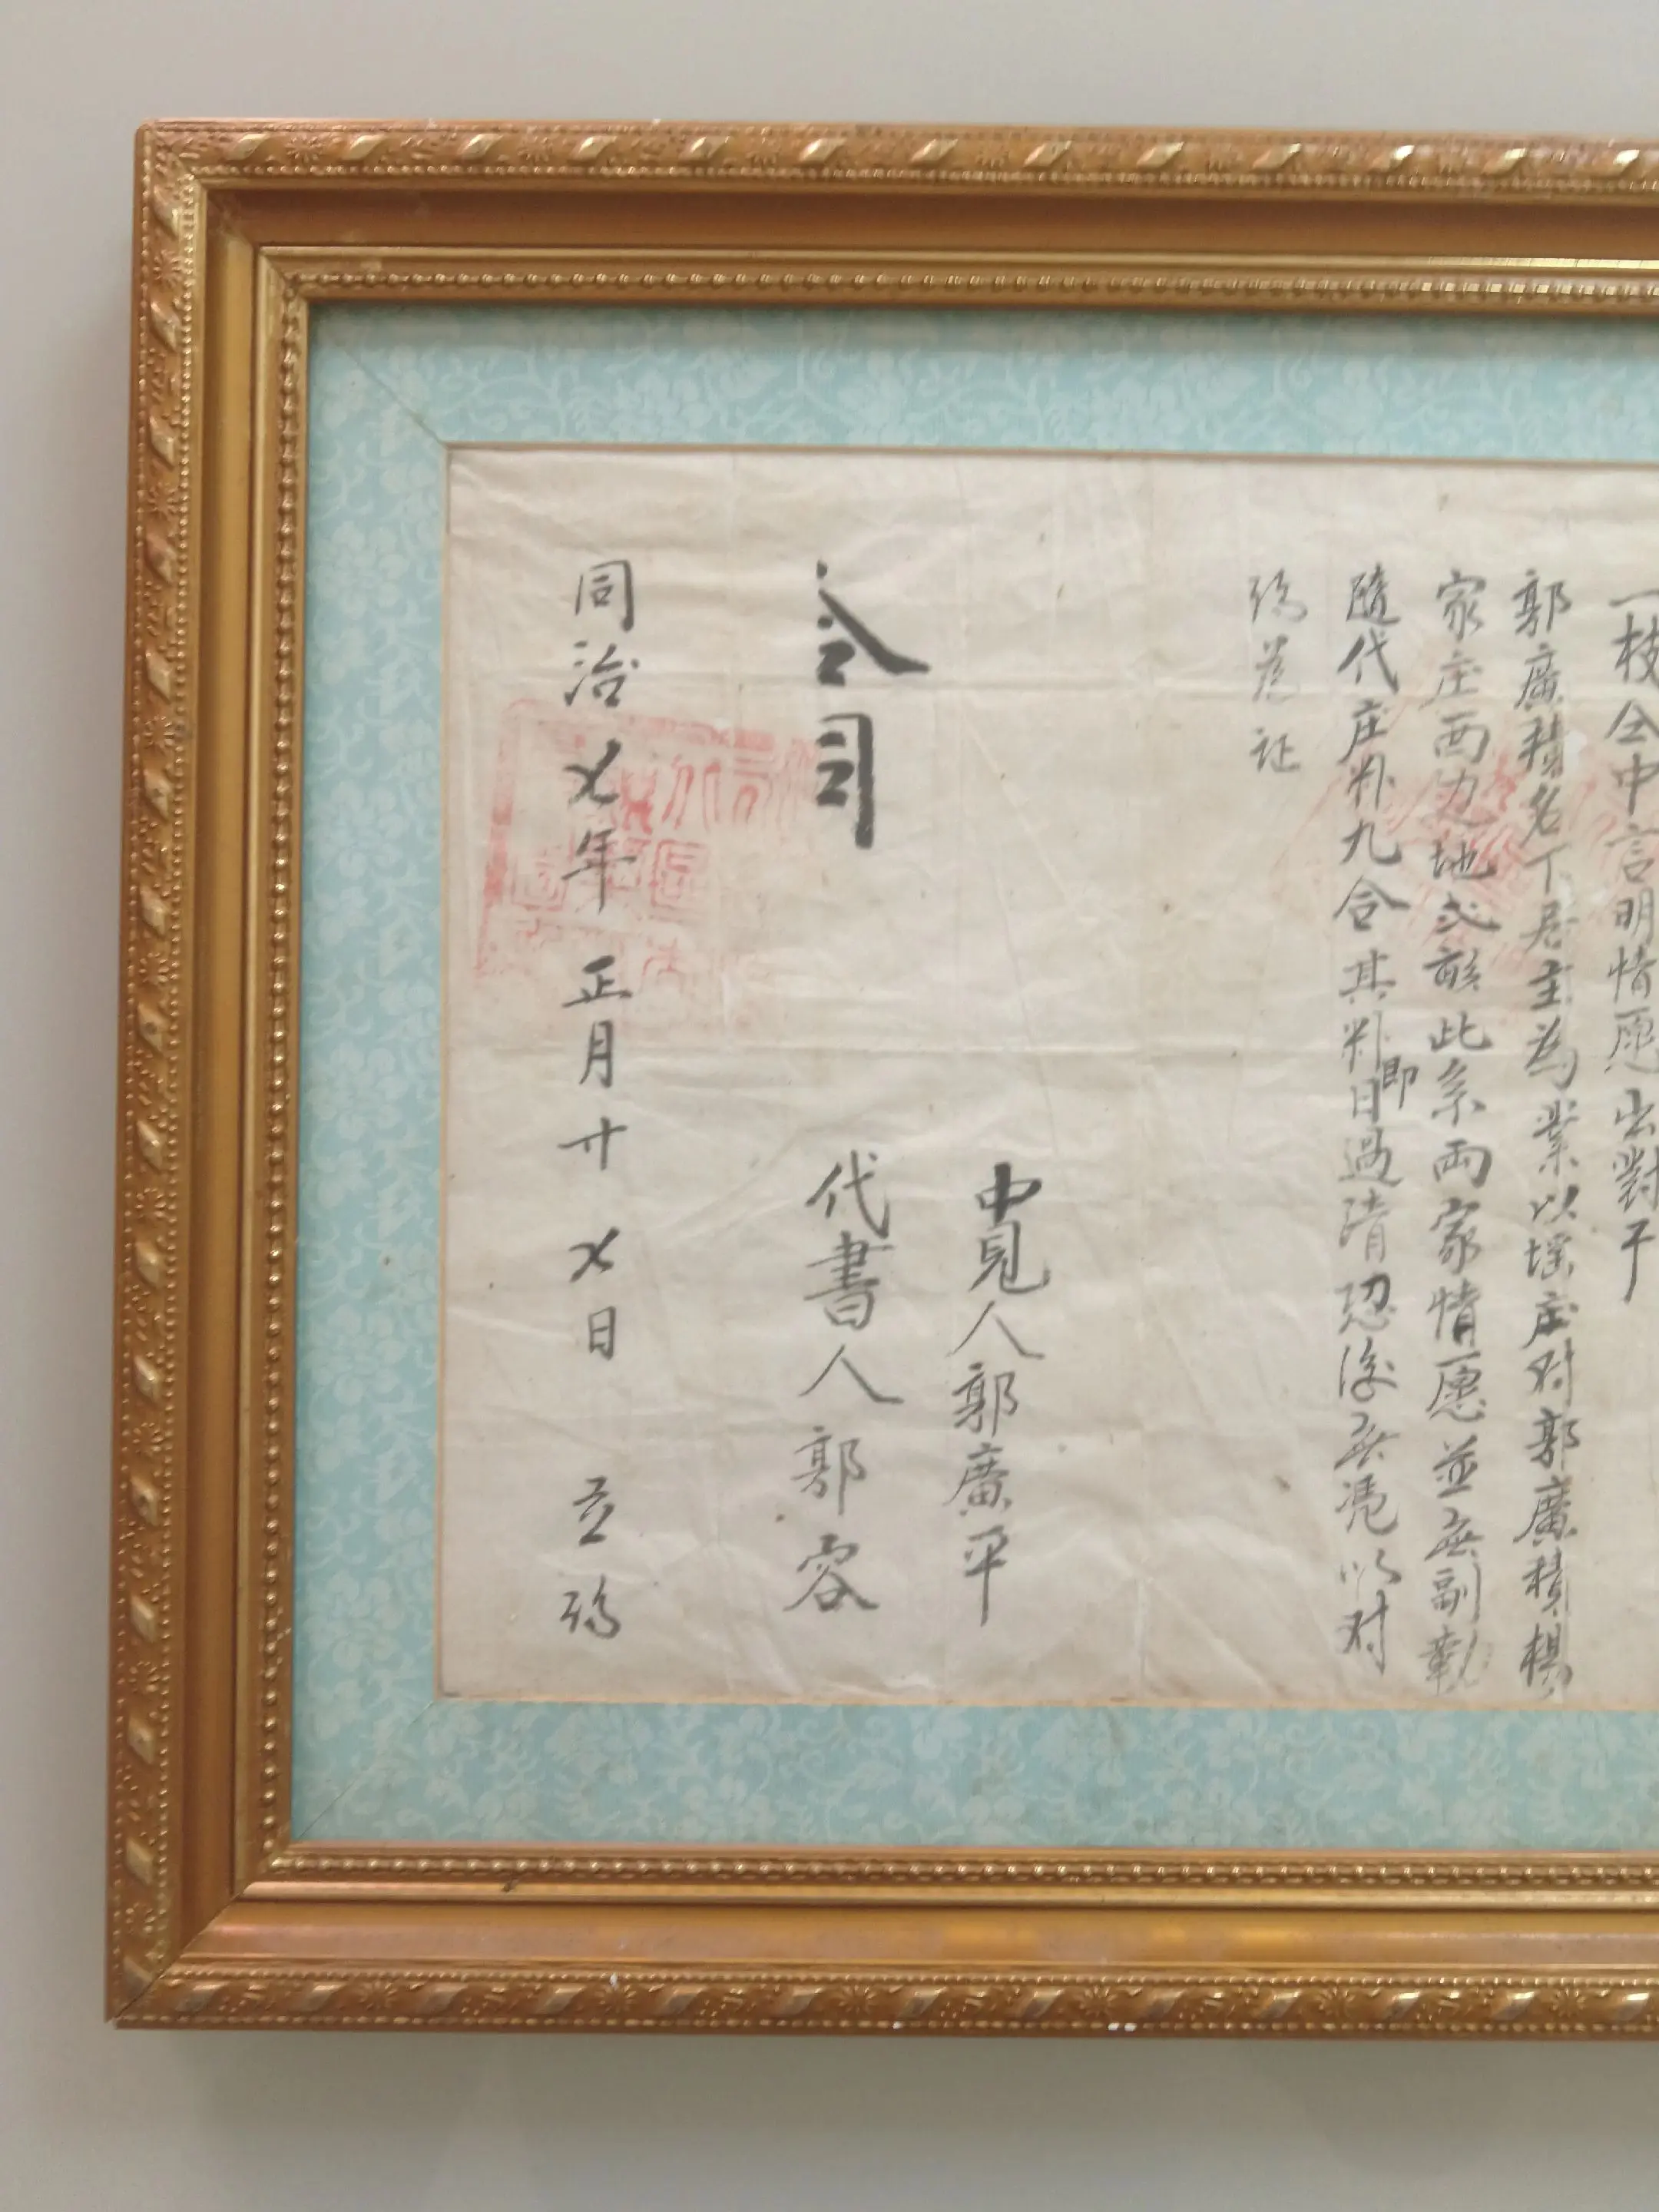 一枝仝中言明情愿出對于
郭廣積名下居主為業以塔庄对郭廣積楊
家庄西力地式該此系両家情愿並無副勒
隨代庄粮九合其粮即日過清恐後無凭以对
約為证
中見人郭廣平
代書人郭容
合同
同治七年正月廿七日 立約